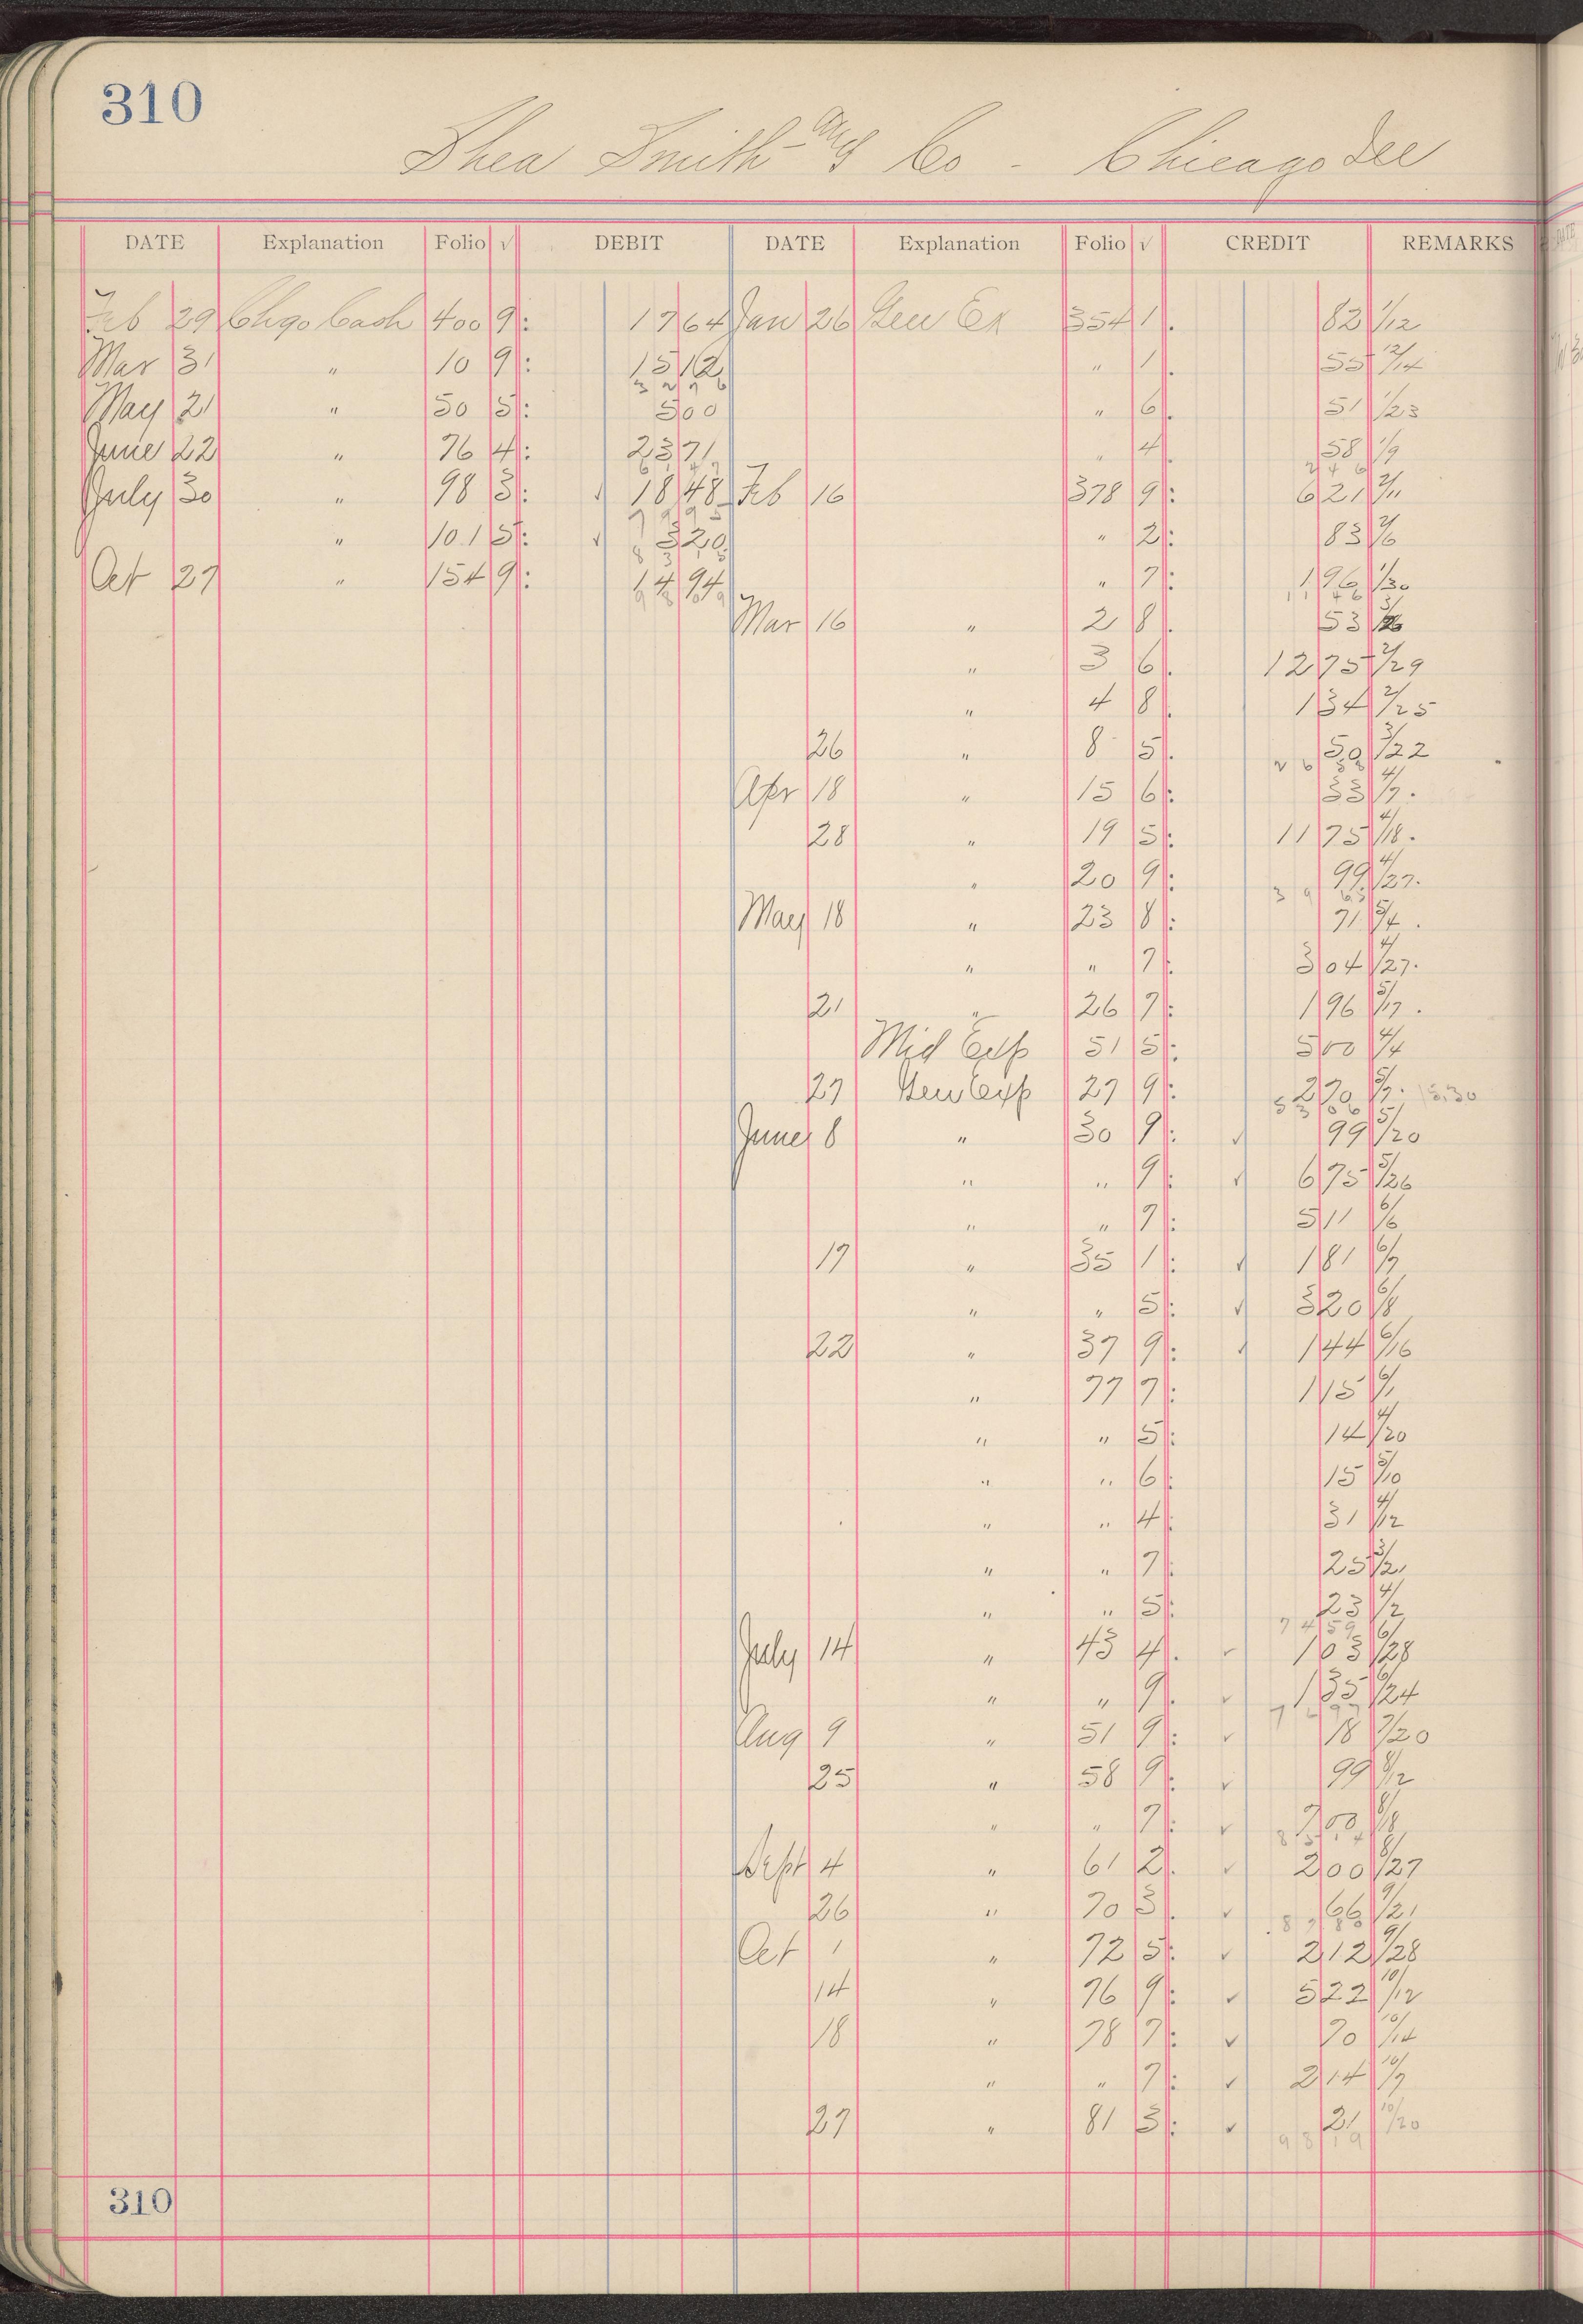 310
Shea Smith and Co - Chicago Ill
DATE Explanation Folio √ DEBIT DATE Explanation Folio √ CREDIT REMARKS
Feb 29 Chgo Cash 400 9: 17 64 Jan 26 Gen Ex 354 1. 82 1/12
Mar 31 " 10 9: 15 12 " 1. 55 12/14
3 2 7 6
May 21 " 50 5: 5 00 " 6. 51 1/23
June 22 " 76 4: 23 71 " 4. 58 1/9
6 1 4 7 2 4 6
July 30 " 98 3: √ 18 48 Feb 16 378 9: 6 21 2/11
7 9 9 5
" 101 5: √ 3 20 " 2: 83 2/6
8 3 1 5
Oct 27 " 154 9: 14 94 " 7: 1 96 1/30
9 8 0 9 1 1 4 6
Mar 16 " 2 8. 53
" 3 6. 12 75 2/29
" 4 8. 1 34 2/25
26 " 8 5. 50 3/22
2 6 5 8
Apr 18 " 15 6: 33 4/7.
28 " 19 5: 11 75 4/18.
" 20 9: 99 4/27.
3 9 6 5
May 18 " 23 8: 71 5/4.
" " 7: 3 04 4/27.
21 " 26 7: 1 96 5/17.
Mid Exp 51 5: 5 00 4/4
27 Gen Exp 27 9: 2 70 5/7. 13.30
5 3 0 6
June 8 " 30 9: √ 99 5/20
" " 9: √ 6 75 5/26
" " 7: 5 11 6/6
17 " 35 1: √ 1 81 6/7
" " 5: √ 3 20 6/8
22 " 37 9: √ 1 44 6/16
" 77 7: 1 15 6/1
" " 5: 14 4/20
" " 6: 15 5/10
" " 4: 31 4/12
" " 7: 25 3/21
" " 5: 23 4/2
7 4 5 9
July 14 " 43 4. √ 1 03 6/28
" " 9. √ 1 35 6/24
7 6 9 7
Aug 9 " 51 9: √ 18 7/20
25 " 58 9: √ 99 8/12
" " 7: √ 7 00 8/18
8 5 1 4
Sept 4 " 61 2. √ 2 00 8/27
26 " 70 3. √ 66 9/21
8 7 8 0
Oct 1 " 72 5: √ 2 12 9/28
14 " 76 9: √ 5 22 10/12
18 " 78 7: √ 70 10/14
" " 7: √ 2 14 10/7
27 " 81 3: √ 21 10/20
9 8 1 9
310